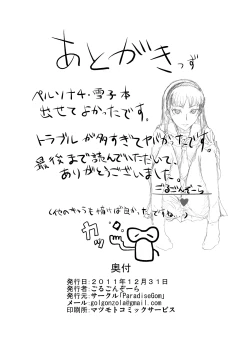 あとがきっず
ペルソナ4・雪子本
出せてよかったです。
トラブルが多すぎてヤバかったです。
最後まで読んでいただいて、
ありがとうございました。
ごるごんぞーら
(他のキャラも描けば良かったですね。)
カッ
奥付
発行日:2011年12月31日
発行者:ごるごんぞーら
発行元:サークル「ParadiseGom」
メール:golgonzola@gmail.com
印刷所:マツモトコミックサービス